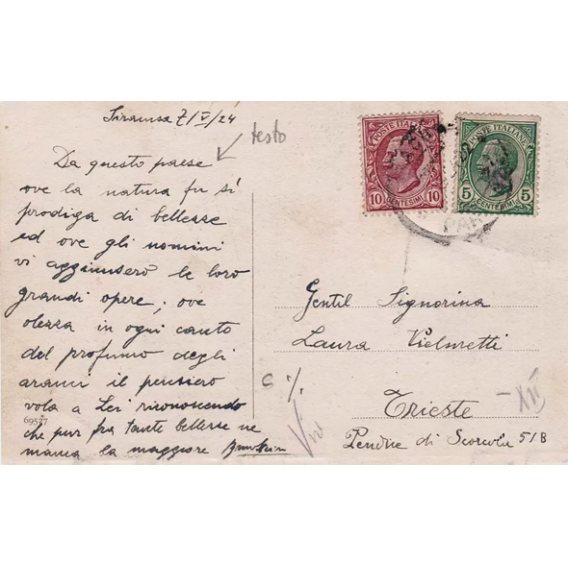 Siracusa 7/V/24
testo
Da questo paese
ove la natura fu sì
prodiga di bellesse
ed ove gli uomini
vi aggiunsero le loro
grandi opere; ove
olessa in ogni canto
del profumo degli
aranci il pensiero
vola a Lei riconoscendo
che pur fra tante bellesse ne
manca la maggiore
69557
POSTE ITALIANE
10 CENTESIMI 10
POSTE ITALIANE
5 CENTESIMI 5
Gentil Signorina
Laura Vielmetti
Trieste
di Scorcola 51B
XII